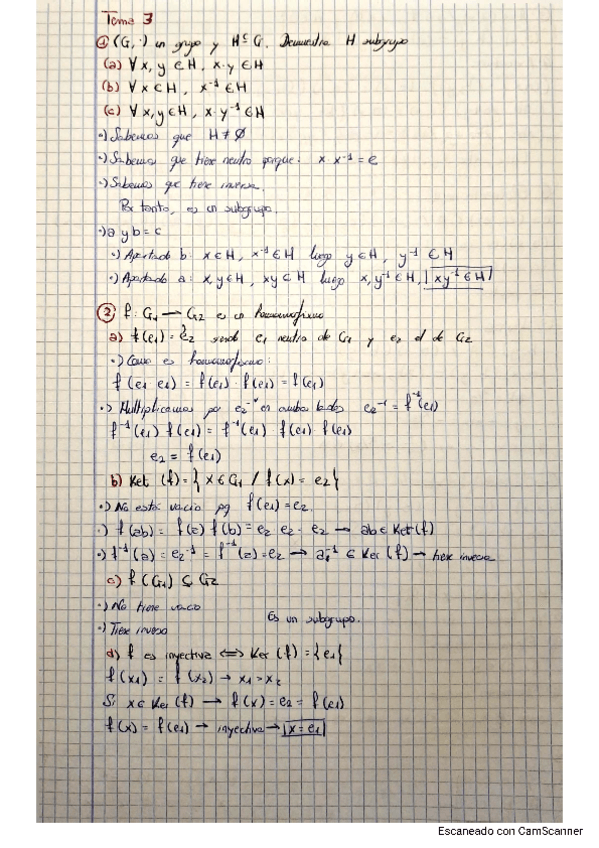 Tema 3
① (G, ·) un grupo y H ⊆ G. Demuestra H subgrupo
(a) ∀ x, y ∈ H, x·y ∈ H
(b) ∀ x ∈ H, x⁻¹ ∈ H
(c) ∀ x, y ∈ H, x·y⁻¹ ∈ H
·) Sabemos que H ≠ ∅
·) Sabemos que tiene neutro porque: x x⁻¹ = e
·) Sabemos que tiene inverso.
Por tanto, es un subgrupo.
·) a y b = c
·) Apartado b: x ∈ H, x⁻¹ ∈ H luego y ∈ H, y⁻¹ ∈ H
·) Apartado a: x, y ∈ H, xy ∈ H luego x, y⁻¹ ∈ H, xy⁻¹ ∈ H
② f: G₁ → G₂ es un homomorfismo
a) f(e₁) = e₂ siendo e₁ neutro de G₁ y e₂ el de G₂
·) Como es homomorfismo:
f(e₁ e₁) = f(e₁) · f(e₁) = f(e₁)
·) Multiplicamos por e₂⁻¹ en ambos lados e₂⁻¹ = f⁻¹(e₁)
f⁻¹(e₁) f(e₁) = f⁻¹(e₁) · f(e₁) f(e₁)
e₂ = f(e₁)
b) Ker (f) = { x ∈ G₁ / f(x) = e₂ }
·) No está vacío pq f(e₁) = e₂.
·) f(ab) = f(a) f(b) = e₂ e₂ = e₂ → ab ∈ Ker(f)
·) f⁻¹(a) = e₂⁻¹ = f⁻¹(a) = e₂ → a⁻¹ ∈ Ker (f) → tiene inverso
c) f(G₁) ⊆ G₂
·) No tiene vacío
Es un subgrupo.
·) Tiene inverso
d) f es inyectiva ⟺ Ker (f) = {e₁}
f(x₁) = f(x₂) → x₁ = x₂
Si x ∈ Ker (f) → f(x) = e₂ = f(e₁)
f(x) = f(e₁) → inyectiva → x = e₁
Escaneado con CamScanner